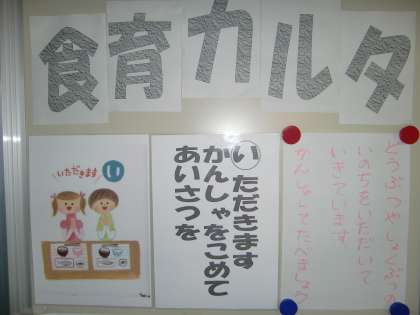 食育カルタ
いただきます
い
いただきます
かんしゃをこめて
あいさつを
どうぶつやしょくぶつの
いのちをいただいて
いきています
かんしゃしてたべましょう